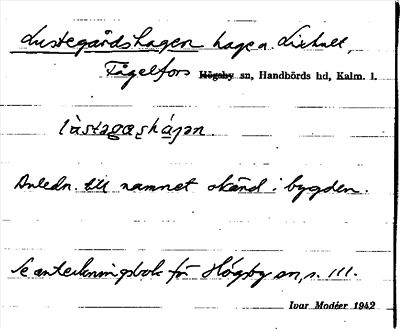 Lustegårdshagen hage n. Lixhult,
Fågelfors Högsby sn, Handbörds hd, Kalm. l.
Anledn. till namnet okänd i bygden.
Se anteckningsbok för Högsby sn, s. 111.
Ivar Modéer 1942